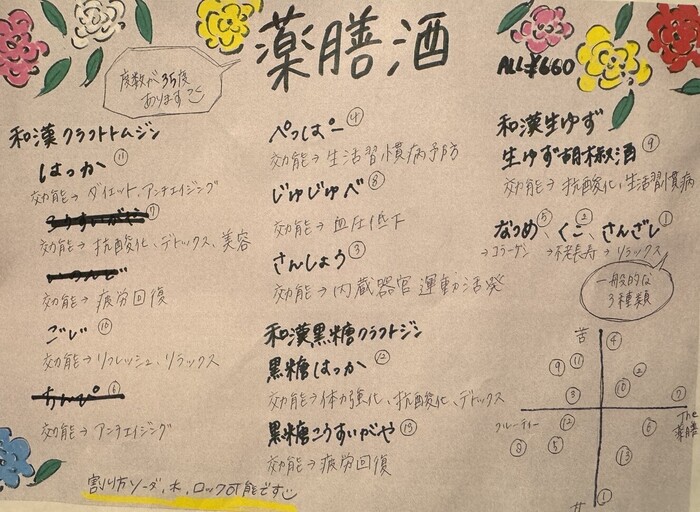 薬膳酒
ALL ¥660
度数が35度
あります
和漢クラフトトムジン
はっか ⑪
効能→ダイエット、アンチエイジング
こうすいがや ⑦
効能→抗酸化、デトックス、美容
効能→疲労回復
ごしじ ⑩
効能→リフレッシュ、リラックス
⑥
効能→アンチエイジング
割り方ソーダ、水、ロック可能です
ぺっぱー ④
効能→生活習慣病予防
じゅじゅべ ⑧
効能→血圧低下
さんしょう ③
効能→内蔵器官運動活発
和漢黒糖クラフトジン
黒糖はっか ⑫
効能→体力強化、抗酸化、デトックス
黒糖こうすいがや ⑬
効能→疲労回復
和漢生ゆず
生ゆず胡椒酒 ⑨
効能→抗酸化、生活習慣病
なつめ⑤、くこ②、さんざし①
→コラーゲン →不老長寿 →リラックス
一般的な
3種類
苦
④
⑨ ⑪
②
③ ⑩ ⑦
フルーティー
The
薬膳
⑫ ⑥
⑧ ⑤
⑬
①
甘